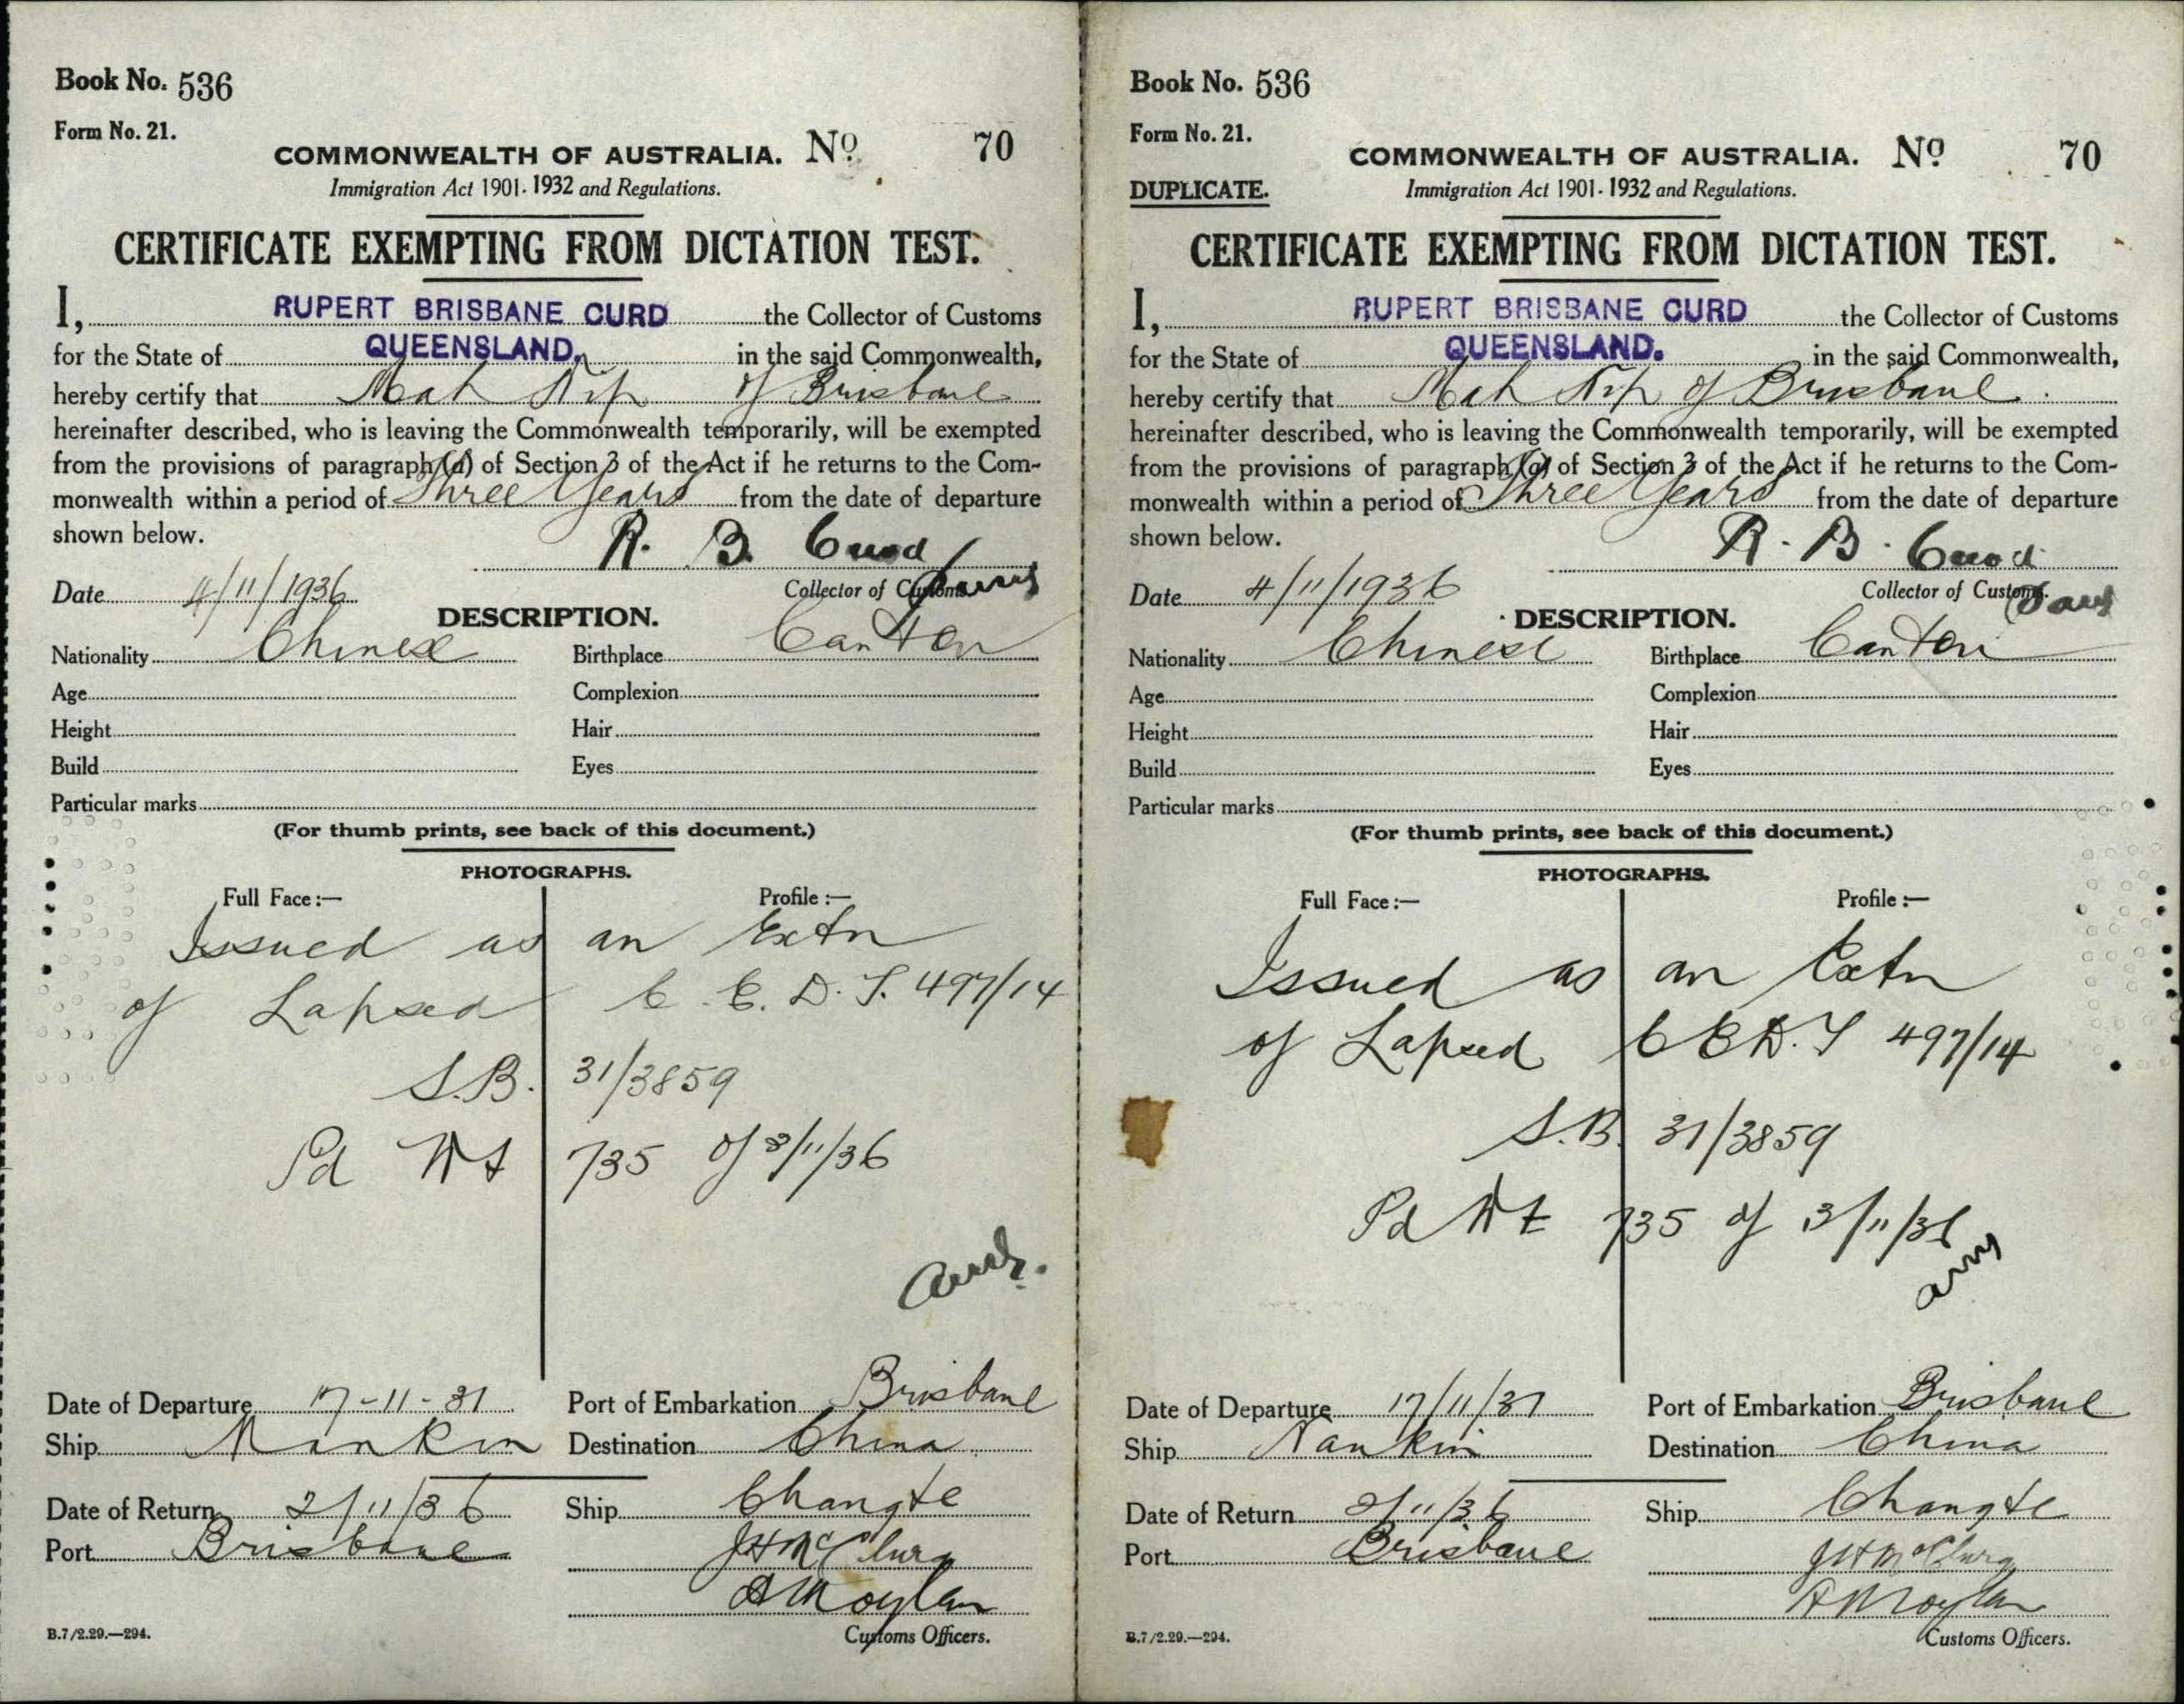 Book No. 536
Form No. 21.
COMMONWEALTH OF AUSTRALIA. No. 70
Immigration Act 1901-1932 and Regulations.
CERTIFICATE EXEMPTING FROM DICTATION TEST.
I, RUPERT BRISBANE CURD the Collector of Customs
for the State of QUEENSLAND. in the said Commonwealth,
hereby certify that Mah Nip of Brisbane
hereinafter described, who is leaving the Commonwealth temporarily, will be exempted
from the provisions of paragraph (a) of Section 3 of the Act if he returns to the Com-
monwealth within a period of Three Years from the date of departure
shown below.
R. B. Curd
Date 4/11/1936 Collector of Customs.
DESCRIPTION.
Nationality Chinese Birthplace Canton
Age Complexion
Height Hair
Build Eyes
Particular marks
(For thumb prints, see back of this document.)
PHOTOGRAPHS.
Full Face :— Profile :—
Issued as an Extn
of Lapsed C.E.D.T. 497/14
S.B. 31/3859
Pd 735 of 3/11/36
Date of Departure 17-11-31 Port of Embarkation Brisbane
Ship Nankin Destination China
Date of Return 2/11/36 Ship Changte
Port Brisbane J H McClurg
A Moylan
B.7/2.29.—294. Customs Officers.
Book No. 536
Form No. 21.
COMMONWEALTH OF AUSTRALIA. No. 70
DUPLICATE. Immigration Act 1901-1932 and Regulations.
CERTIFICATE EXEMPTING FROM DICTATION TEST.
I, RUPERT BRISBANE CURD the Collector of Customs
for the State of QUEENSLAND. in the said Commonwealth,
hereby certify that Mah Nip of Brisbane.
hereinafter described, who is leaving the Commonwealth temporarily, will be exempted
from the provisions of paragraph (a) of Section 3 of the Act if he returns to the Com-
monwealth within a period of Three Years from the date of departure
shown below.
R. B. Curd
Date 4/11/1936 Collector of Customs.
DESCRIPTION.
Nationality Chinese Birthplace Canton
Age Complexion
Height Hair
Build Eyes
Particular marks
(For thumb prints, see back of this document.)
PHOTOGRAPHS.
Full Face :— Profile :—
Issued as an Extn
of Lapsed C E D. T 497/14
S.B. 31/3859
Pd 735 of 3/11/36
Date of Departure 17/11/31 Port of Embarkation Brisbane
Ship Nankin Destination China
Date of Return 2/11/36 Ship Changte
Port Brisbane J H McClurg
A Moylan
B.7/2.29.—294. Customs Officers.